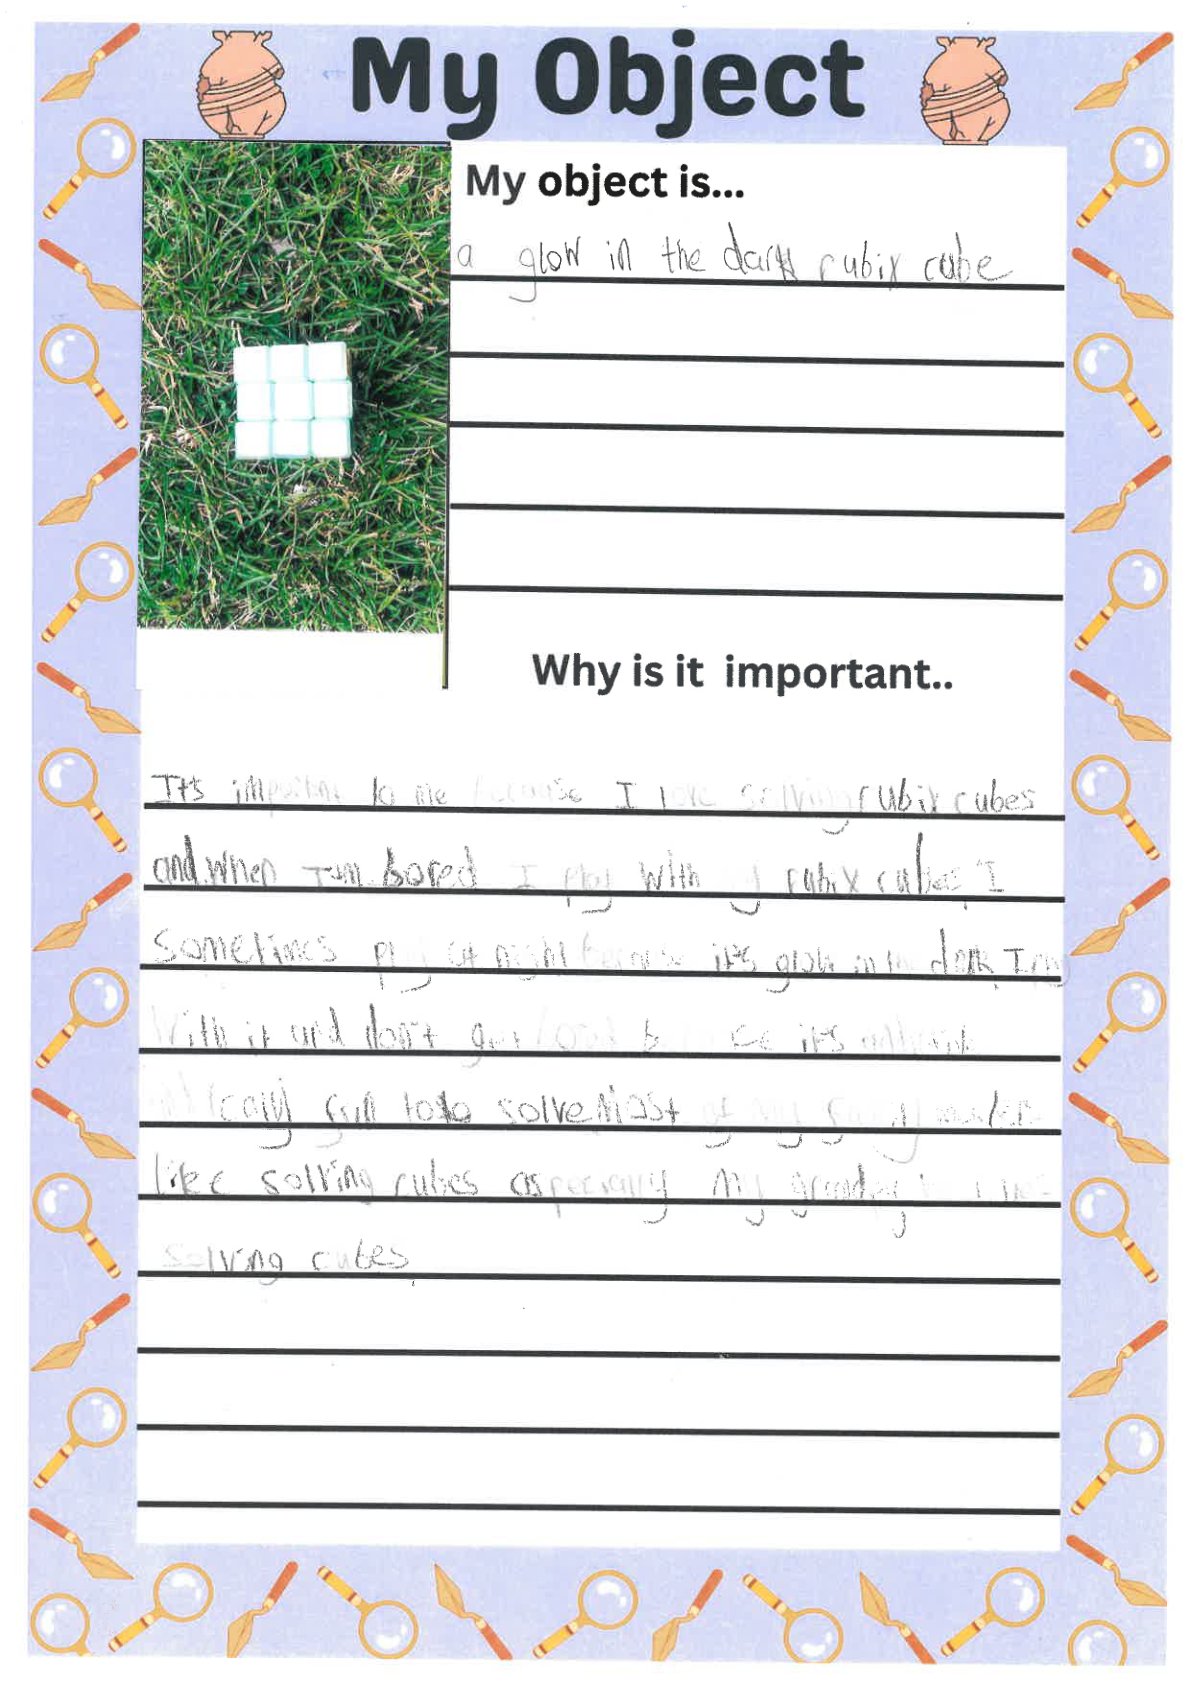 My Object
My object is...
a glow in the dark rubix cube
Why is it important..
It's important to me because I love solving rubix cubes
and when I'm bored I play with my rubix cubes, I
sometimes play at night because it's glow in the dark, I
with it and don't get because it's
really fun to solve Most of my family
like solving cubes aspecially My
solving cubes,